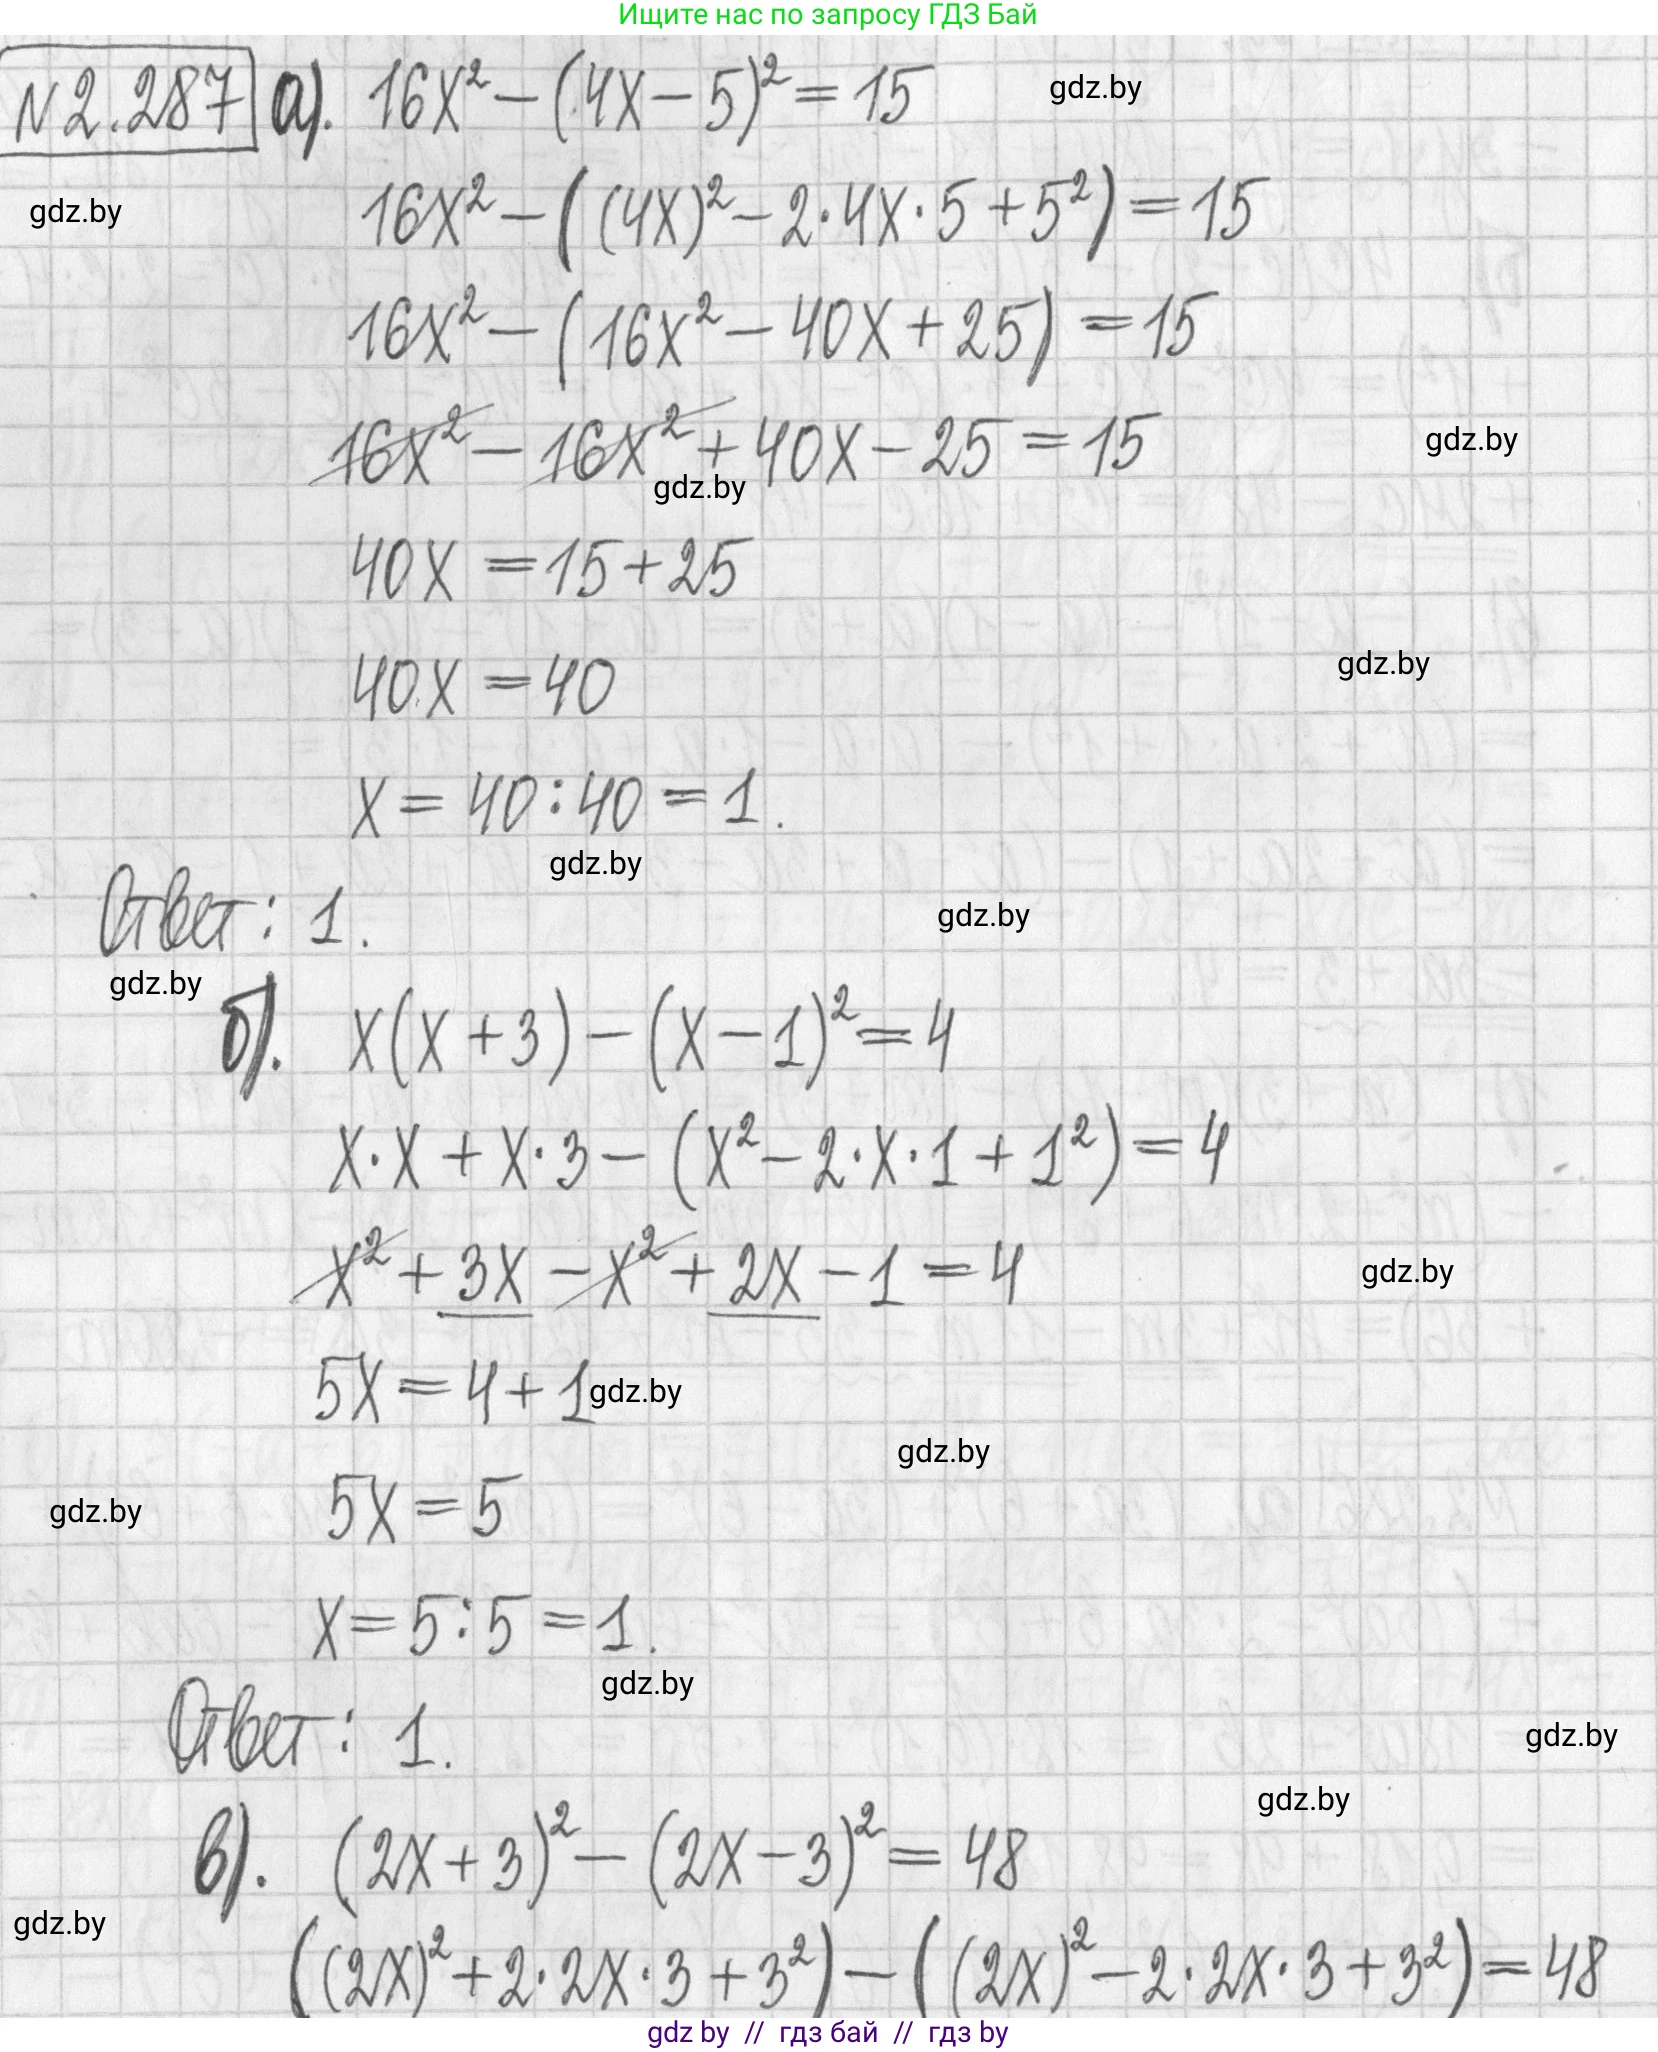 Ищите нас по запросу ГДЗ Бай
N 2.287 а). 16x² - (4x - 5)² = 15
gdz.by
gdz.by
16x² - ((4x)² - 2·4x·5 + 5²) = 15
16x² - (16x² - 40x + 25) = 15
16x² - 16x² + 40x - 25 = 15
gdz.by
gdz.by
40x = 15 + 25
40x = 40
gdz.by
x = 40 : 40 = 1.
gdz.by
Ответ: 1.
gdz.by
gdz.by
б). x(x + 3) - (x - 1)² = 4
x·x + x·3 - (x² - 2·x·1 + 1²) = 4
x² + 3x - x² + 2x - 1 = 4
gdz.by
5x = 4 + 1
gdz.by
gdz.by
5x = 5
gdz.by
x = 5 : 5 = 1.
gdz.by
Ответ: 1.
gdz.by
gdz.by
в). (2x + 3)² - (2x - 3)² = 48
gdz.by
((2x)² + 2·2x·3 + 3²) - ((2x)² - 2·2x·3 + 3²) = 48
gdz by // гдз бай // гдз by